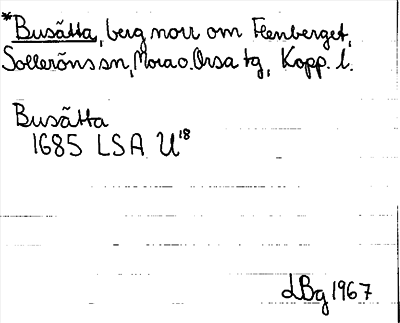 *Busätta, berg norr om Flenberget,
Solleröns sn, Mora o. Orsa tg, Kopp. l.
Busätta
1685 LSA U18
LBg 1967